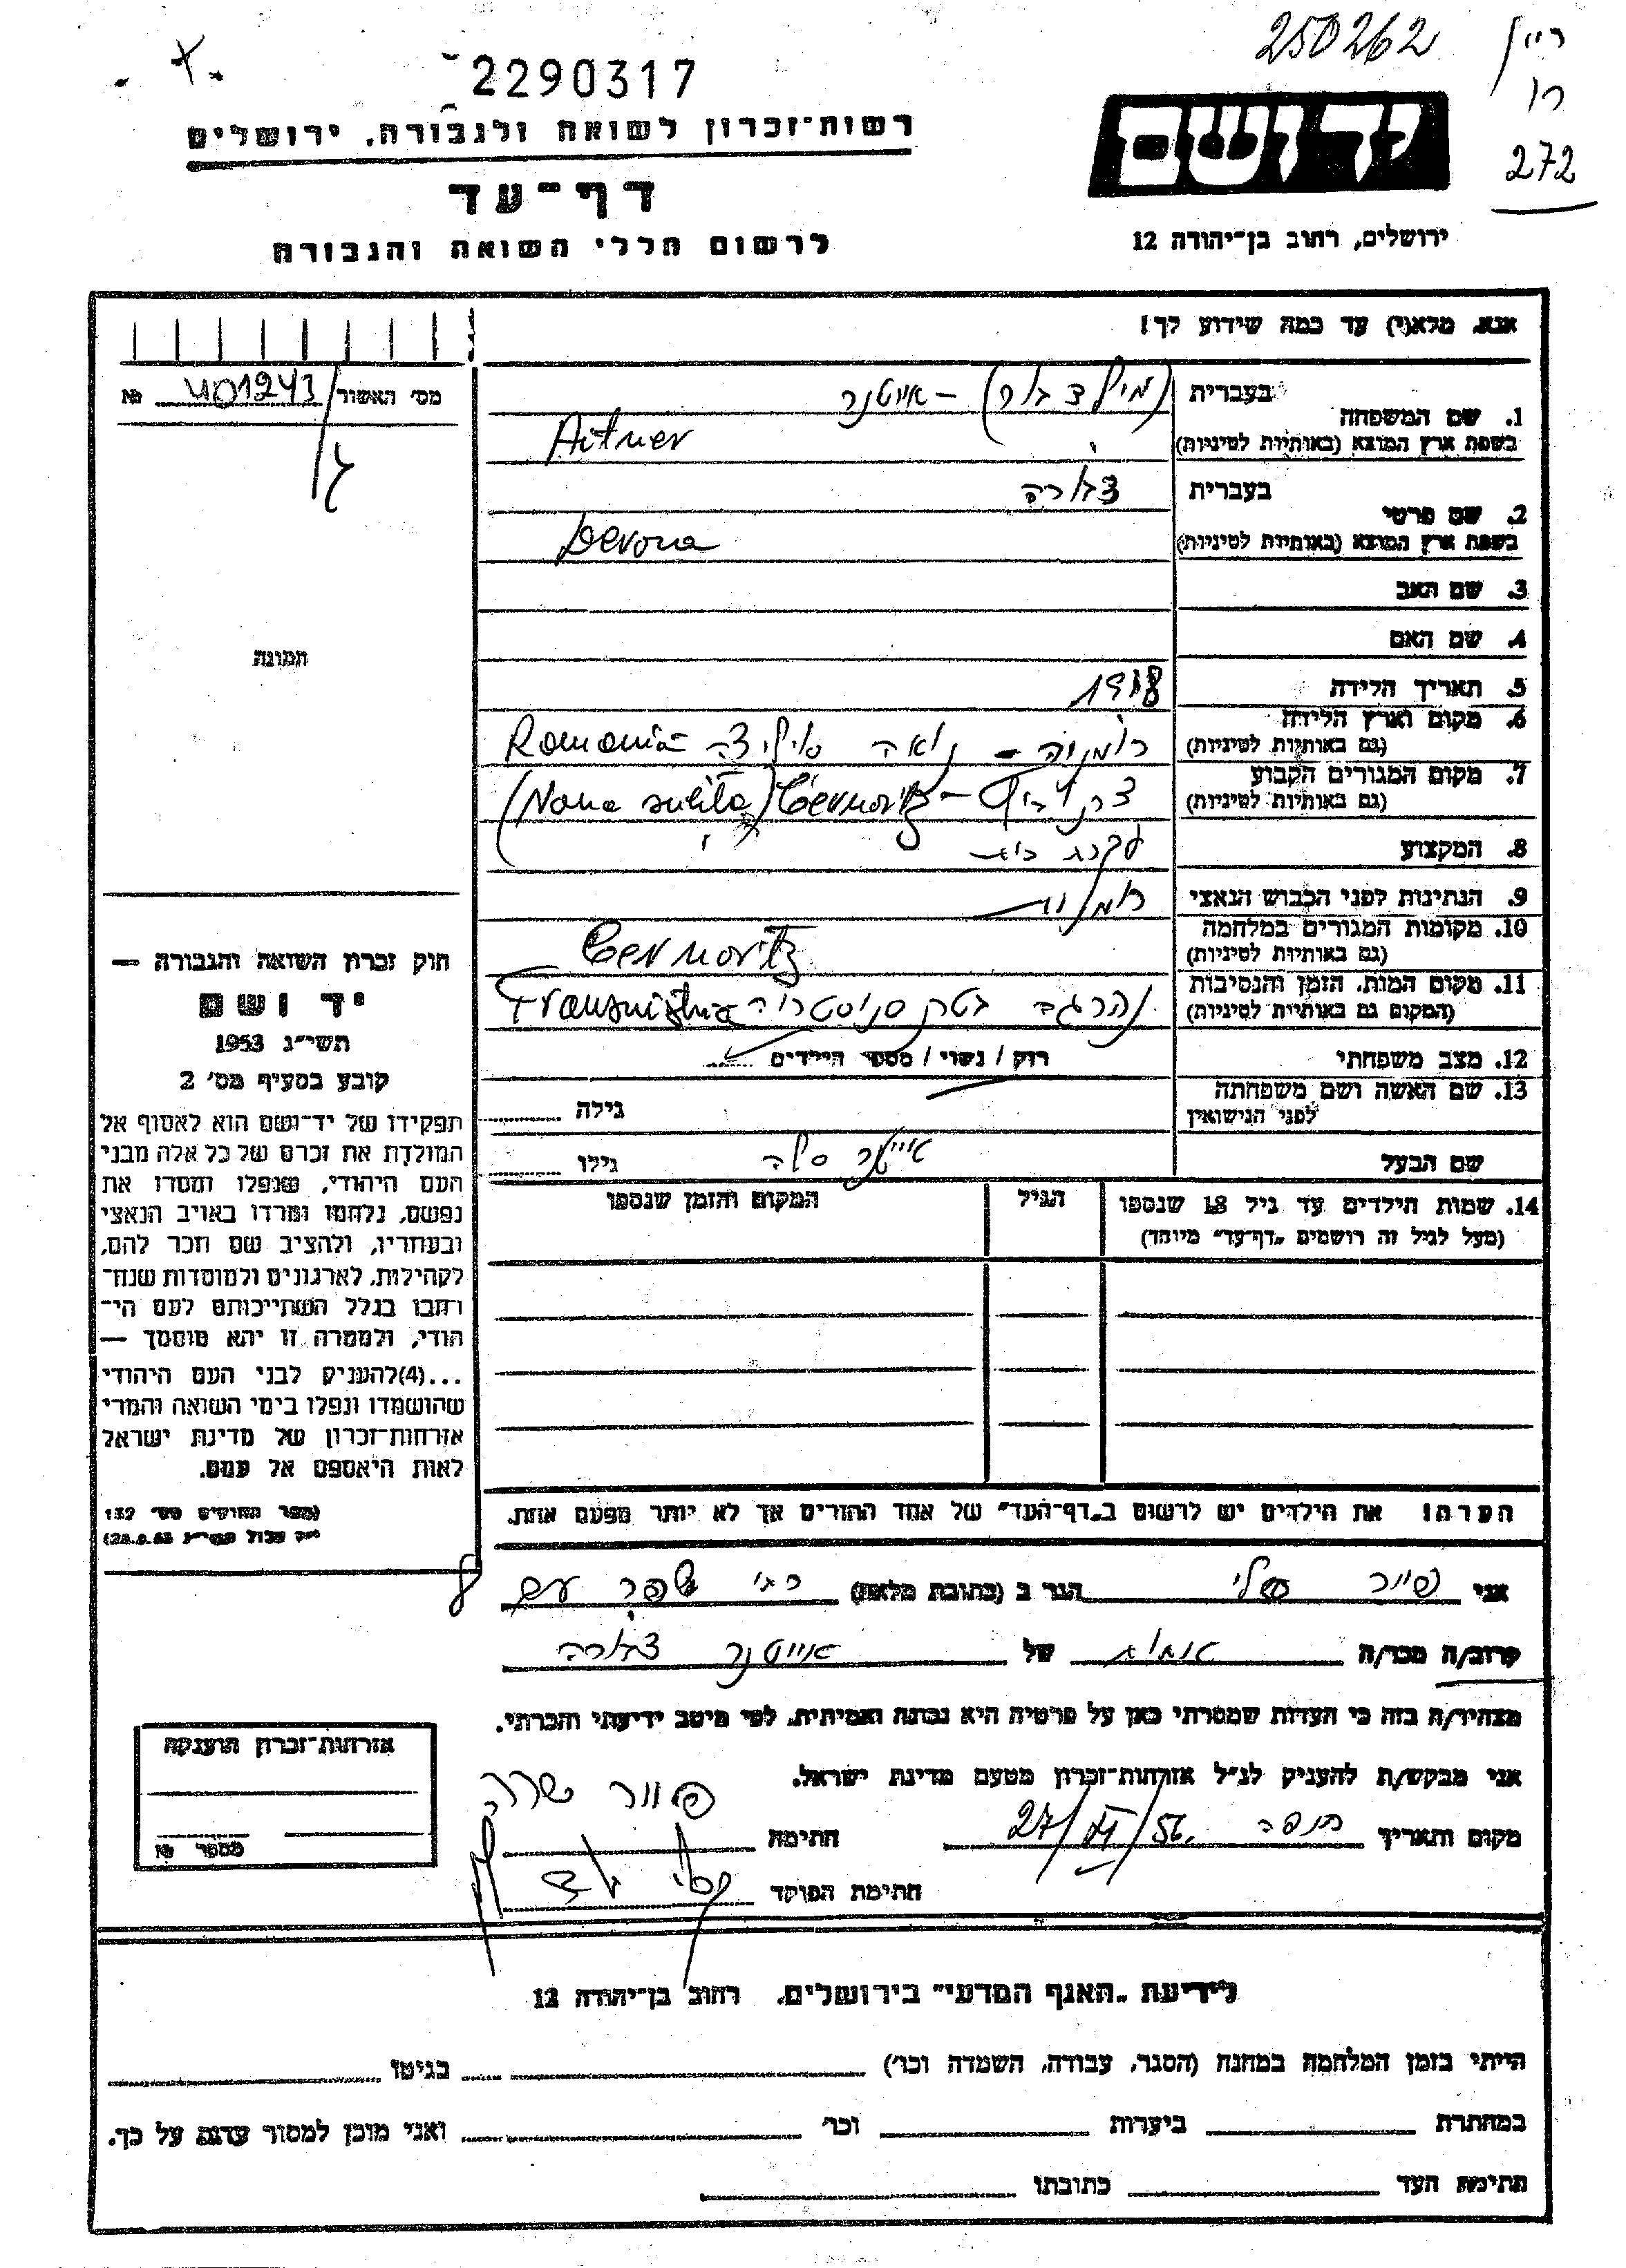 250262
272
2290317
רשות־זכרון לשואה ולגבורה, ירושלים
יד ושם
דף־עד
ירושלים, רחוב בן־יהודה 12
לרשום חללי השואה והגבורה
אנא, מלא(י) עד כמה שידוע לך!
מס׳ האשור 401243 №
1. שם המשפחה
בעברית אייטנר
בשפת ארץ המוצא (באותיות לטיניות) Aitner
2. שם פרטי
בעברית דבורה
בשפת ארץ המוצא (באותיות לטיניות) Devora
3. שם האב
4. שם האם
תמונה
5. תאריך הלידה 1918
6. מקום וארץ הלידה
(גם באותיות לטיניות) רומניה – נואה סוליצה Romania
7. מקום המגורים הקבוע
(גם באותיות לטיניות) Cernovitz (Noua sulita)
8. המקצוע עקרת בית
9. הנתינות לפני הכבוש הנאצי רומנית
10. מקומות המגורים במלחמה
(גם באותיות לטיניות) Cernovitz
11. מקום המות, הזמן והנסיבות
(המקום גם באותיות לטיניות) נהרגה בטרנסניסטריה Transnistria
12. מצב משפחתי רווק / נשוי / מספר הילדים
13. שם האשה ושם משפחתה
לפני הנישואין גילה
שם הבעל אייטנר גילו
14. שמות הילדים עד גיל 18 שנספו
(מעל לגיל זה רושמים „דף־עד״ מיוחד)
הגיל
המקום והזמן שנספו
חוק זכרון השואה והגבורה —
יד ושם
תשי״ג 1953
קובע בסעיף מס׳ 2
תפקידו של יד־ושם הוא לאסוף אל
המולדת את זכרם של כל אלה מבני
העם היהודי, שנפלו ומסרו את
נפשם, נלחמו ומרדו באויב הנאצי
ובעוזריו, ולהציב שם וזכר להם,
לקהילות, לארגונים ולמוסדות שנח־
רבו בגלל השתייכותם לעם הי־
הודי, ולמטרה זו יהא מוסמך —
...(4)להעניק לבני העם היהודי
שהושמדו ונפלו בימי השואה והמרי
אזרחות־זכרון של מדינת ישראל
לאות היאספם אל עמם.
(ספר החוקים מס׳ 132
הערה! את הילדים יש לרשום ב„דף־העד״ של אחד ההורים אך לא יותר מפעם אחת.
אני הגר ב (כתובת מלאה) שפר עם
קרוב/ה מכר/ה אחות של אייטנר דבורה
מצהיר/ה בזה כי העדות שמסרתי כאן על פרטיה היא נכונה ואמיתית, לפי מיטב ידיעתי והכרתי.
אני מבקש/ת להעניק לנ״ל אזרחות־זכרון מטעם מדינת ישראל.
מקום ותאריך חיפה 27/ /56. חתימה שרה
חתימת הפוקד
אזרחות־זכרון הוענקה
מספר №
לידיעת „האגף המדעי״ בירושלים, רחוב בן־יהודה 12
הייתי בזמן המלחמה במחנה (הסגר, עבודה, השמדה וכו׳) בגיטו
במחתרת ביערות וכו׳ ואני מוכן למסור עדות על כך.
חתימת העד כתובתו